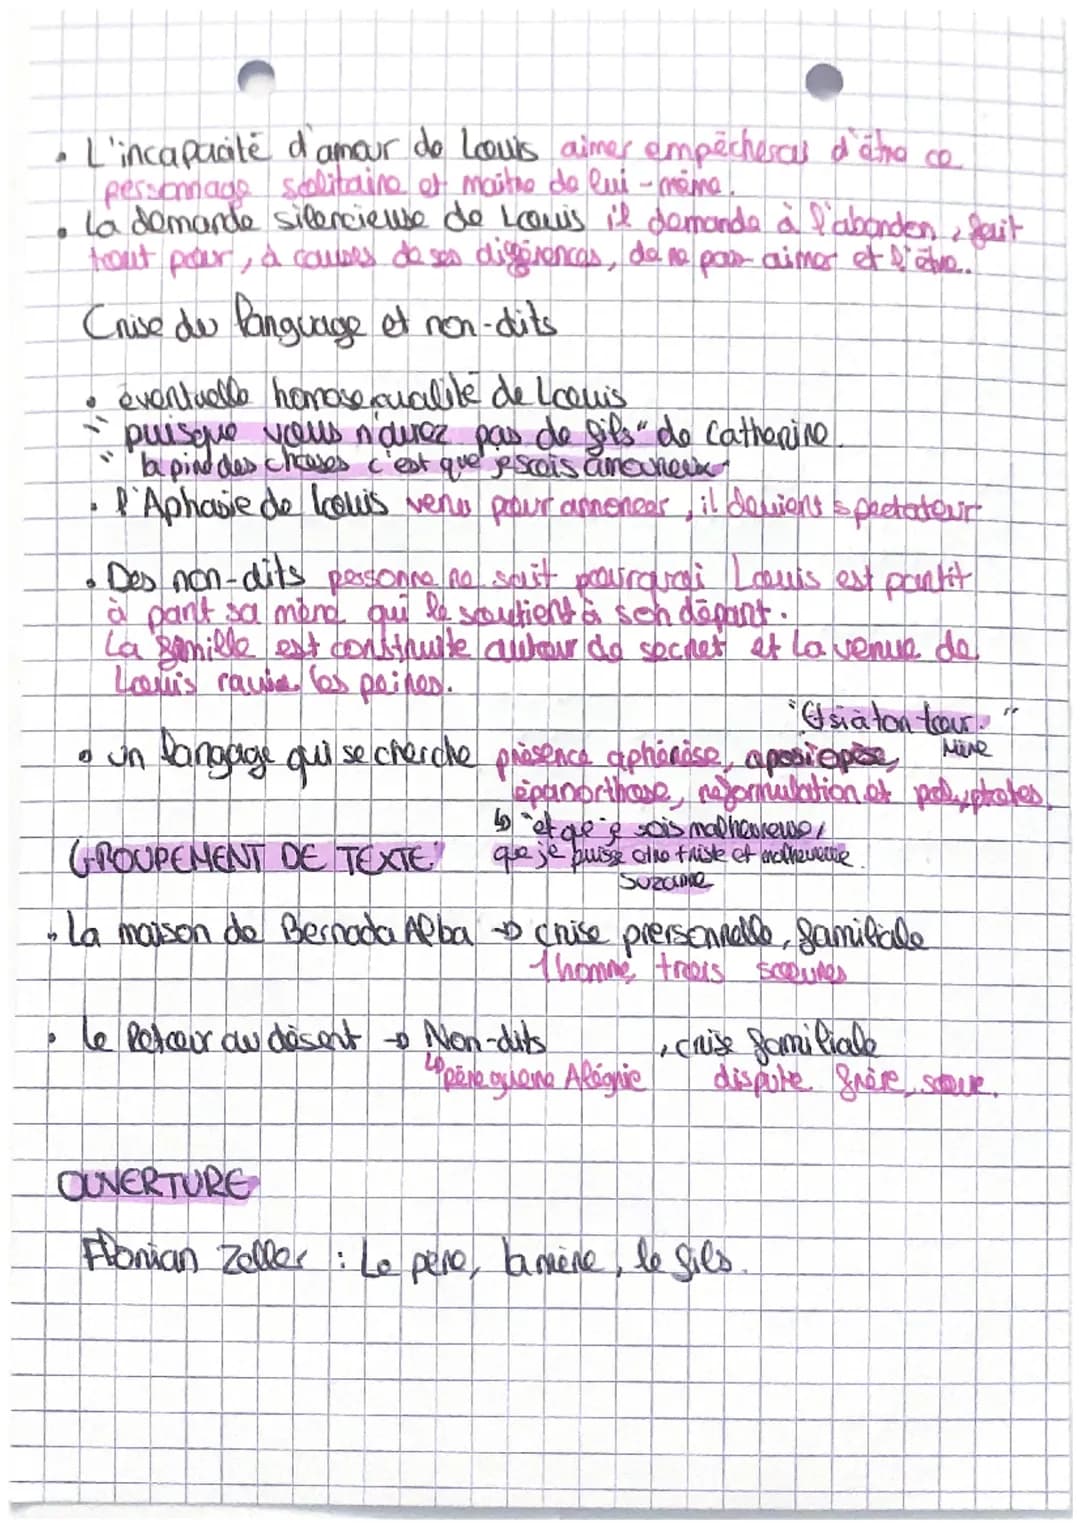 • L'incapacité d'amour de Louis aimer empêcheras d'être ce
personnage solitaire et maître de lui-même.
• La demande silencieuse de Louis il demande à l'abandon, fait
tout pour, à causes de ses différences, de ne pas aimer et l'être.
Crise du language et non-dits
• éventuelle homosexualité de Louis
" puisque vous n'aurez pas de fils" de Catherine.
" la pire des choses c'est que je sois amoureux"
• l'Aphasie de Louis venu pour annoncer, il devient spectateur
• Des non-dits personne ne sait pourquoi Louis est partit
à part sa mère qui le soutient à son départ.
La famille est construite autour de secret et la venue de
Louis ravie les peines.
"Et si à ton tour. "
• un langage qui se cherche présence aphérèse, aposiopèse, Mère
épanorthose, reformulation et polyptotes.
↳ "et que je sois malheureuse,
GROUPEMENT DE TEXTE que je puisse être triste et malheureuse.
Suzanne
• La maison de Bernada Alba → crise prersonnelle, familiale
1 homme trois soeures
• Le Retour au désert → Non-dits , crise familiale
↳ père guerre Algérie dispute frère, soeur.
OUVERTURE
Florian Zeller : Le père, la mère, le fils.